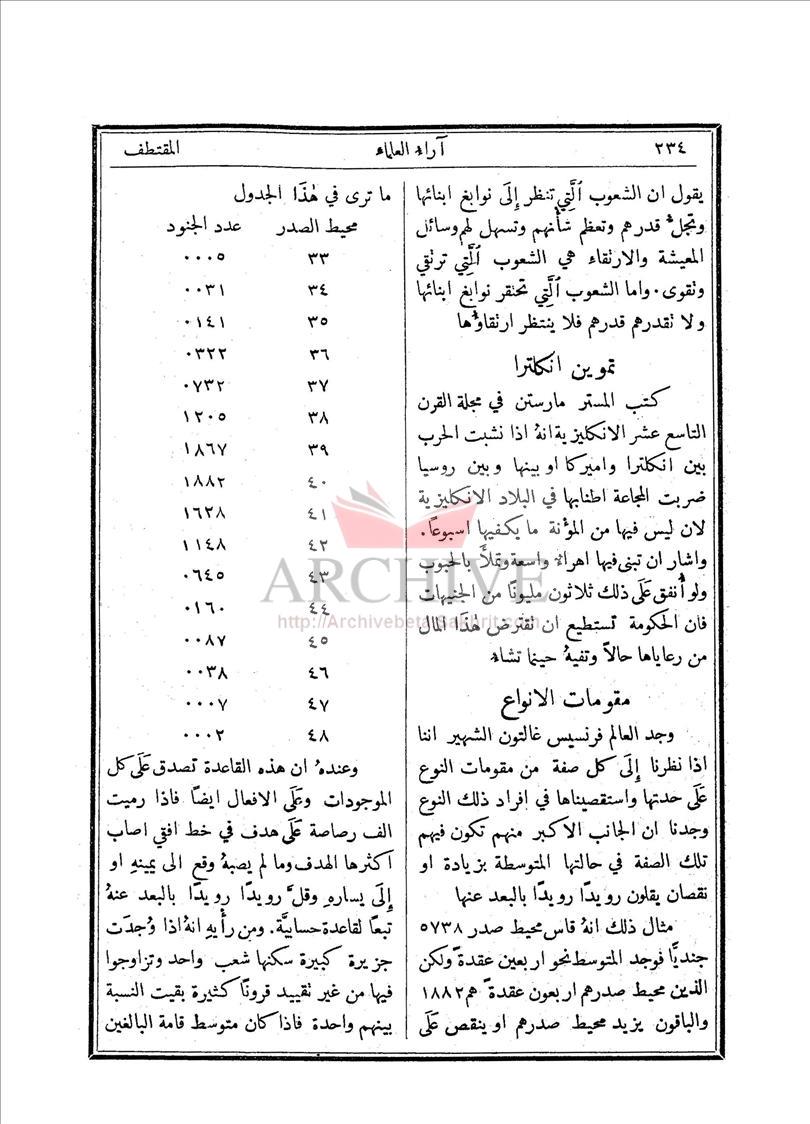 ٢٣٤ آراء العلماء المقتطف
يقول ان الشعوب ٱلَّتِي تنظر إِلَى نوابغ ابنائها
وتجلُّ قدرهم وتعظم شأنهم وتسهل لهم وسائل
المعيشة والارتقاء هي الشعوب ٱلَّتِي ترتقي
وتقوى. واما الشعوب ٱلَّتِي تحتقر نوابغ ابنائها
ولا تقدرهم قدرهم فلا ينتظر ارتقاؤُها
تموين انكلترا
كتب المستر مارستن في مجلة القرن
التاسع عشر الانكليزية انهُ اذا نشبت الحرب
بين انكلترا واميركا او بينها وبين روسيا
ضربت المجاعة اطنابها في البلاد الانكليزية
لان ليس فيها من المؤنة ما يكفيها اسبوعًا.
واشار ان تبنى فيها اهراء واسعة وتملأَ بالحبوب
ولو أُنفق عَلَى ذلك ثلاثون مليونًا من الجنيهات
فان الحكومة تستطيع ان تقترض هٰذَا المال
من رعاياها حالاً وتفيهُ حينما تشاء
مقومات الانواع
وجد العالم فرنسيس غالتون الشهير اننا
اذا نظرنا إِلَى كل صفة من مقومات النوع
عَلَى حدتها واستقصيناها في افراد ذلك النوع
وجدنا ان الجانب الاكبر منهم تكون فيهم
تلك الصفة في حالتها المتوسطة بزيادة او
نقصان يقلون رويدًا رويدًا بالبعد عنها
مثال ذلك انهُ قاس محيط صدر ٥٧٣٨
جنديًّا فوجد المتوسط نحو اربعين عقدةً ولكن
الذين محيط صدرهم اربعون عقدةً هم ١٨٨٢
والباقون يزيد محيط صدرهم او ينقص عَلَى
ما ترى في هٰذَا الجدول
محيط الصدر عدد الجنود
٣٣ ٠٠٠٥
٣٤ ٠٠٣١
٣٥ ٠١٤١
٣٦ ٠٣٢٢
٣٧ ٠٧٣٢
٣٨ ١٢٠٥
٣٩ ١٨٦٧
٤٠ ١٨٨٢
٤١ ١٦٢٨
٤٢ ١١٤٨
٤٣ ٠٦٤٥
٤٤ ٠١٦٠
٤٥ ٠٠٨٧
٤٦ ٠٠٣٨
٤٧ ٠٠٠٧
٤٨ ٠٠٠٢
وعندهُ ان هذه القاعدة تصدق عَلَى كل
الموجودات وعَلَى الافعال ايضًا فاذا رميت
الف رصاصة عَلَى هدف في خط افقي اصاب
اكثرها الهدف وما لم يصبهُ وقع الى يمينهِ او
إِلَى يسارهِ وقلَّ رويدًا رويدًا بالبعد عنهُ
تبعًا لقاعدة حسابيَّة. ومن رأْيهِ انهُ اذا وُجدَت
جزيرة كبيرة سكنها شعب واحد وتزاوجوا
فيها من غير تقييد قرونًا كثيرة بقيت النسبة
بينهم واحدة فاذا كان متوسط قامة البالغين
ARCHIVE
http://Archivebeta.Sakhrit.com